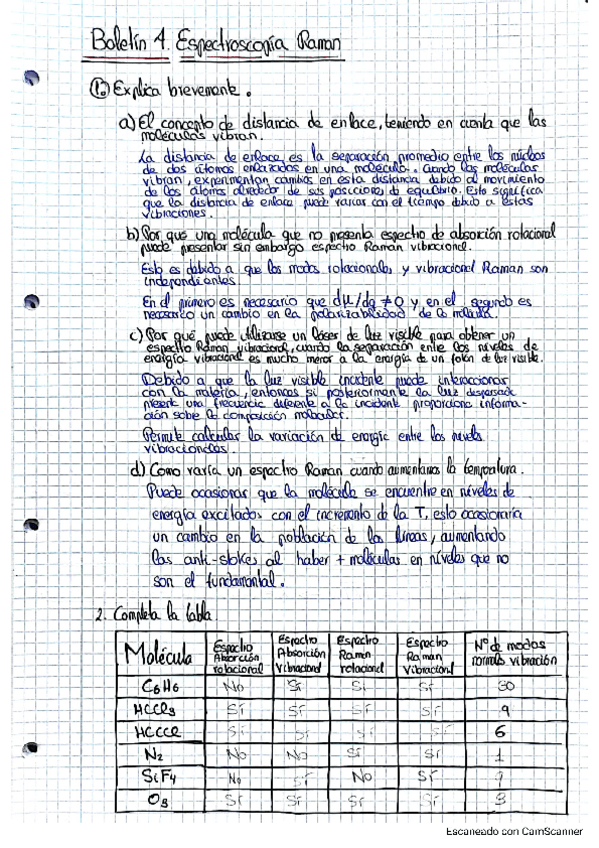 Boletín 4. Espectroscopía Raman
1. Explica brevemente.
a) El concepto de distancia de enlace, teniendo en cuenta que las
moléculas vibran.
La distancia de enlace es la separación promedio entre los núcleos
de dos átomos enlazados en una molécula. Cuando las moléculas
vibran, experimentan cambios en esta distancia debido al movimiento
de los átomos alrededor de sus posiciones de equilibrio. Esto significa
que la distancia de enlace puede variar con el tiempo debido a estas
vibraciones.
b) Por qué una molécula que no presenta espectro de absorción rotacional
puede presentar sin embargo espectro Raman vibracional.
Esto es debido a que los modos rotacionales y vibracional Raman son
independientes
En el primero es necesario que dμ/dq ≠ 0 y en el segundo es
necesario un cambio en la polarizabilidad de la molécula.
c) Por qué puede utilizarse un láser de luz visible para obtener un
espectro Raman vibracional, cuando la separación entre los niveles de
energía vibracional es mucho menor a la energía de un fotón de luz visible.
Debido a que la luz visible incidente puede interaccionar
con la materia, entonces si posteriormente la luz dispersada
presenta una frecuencia diferente a la incidente proporciona informa-
ción sobre la composición molecular.
Permite calcular la variación de energía entre los niveles
vibracionales.
d) Como varía un espectro Raman cuando aumentamos la temperatura.
Puede ocasionar que la molécula se encuentre en niveles de
energía excitados con el incremento de la T, esto ocasionaría
un cambio en la población de las líneas, aumentando
las anti-stokes al haber + moléculas en niveles que no
son el fundamental.
2. Completa la tabla.
Molécula Espectro Absorción rotacional Espectro Absorción Vibracional Espectro Raman rotacional Espectro Raman Vibracional Nº de modos normales vibración
C6H6 No Sí Sí Sí 30
HCCl3 Sí Sí Sí Sí 9
HCCCl Sí Sí Sí Sí 6
N2 No No Sí Sí 1
SiF4 No Sí No Sí 9
O3 Sí Sí Sí Sí 3
Escaneado con CamScanner